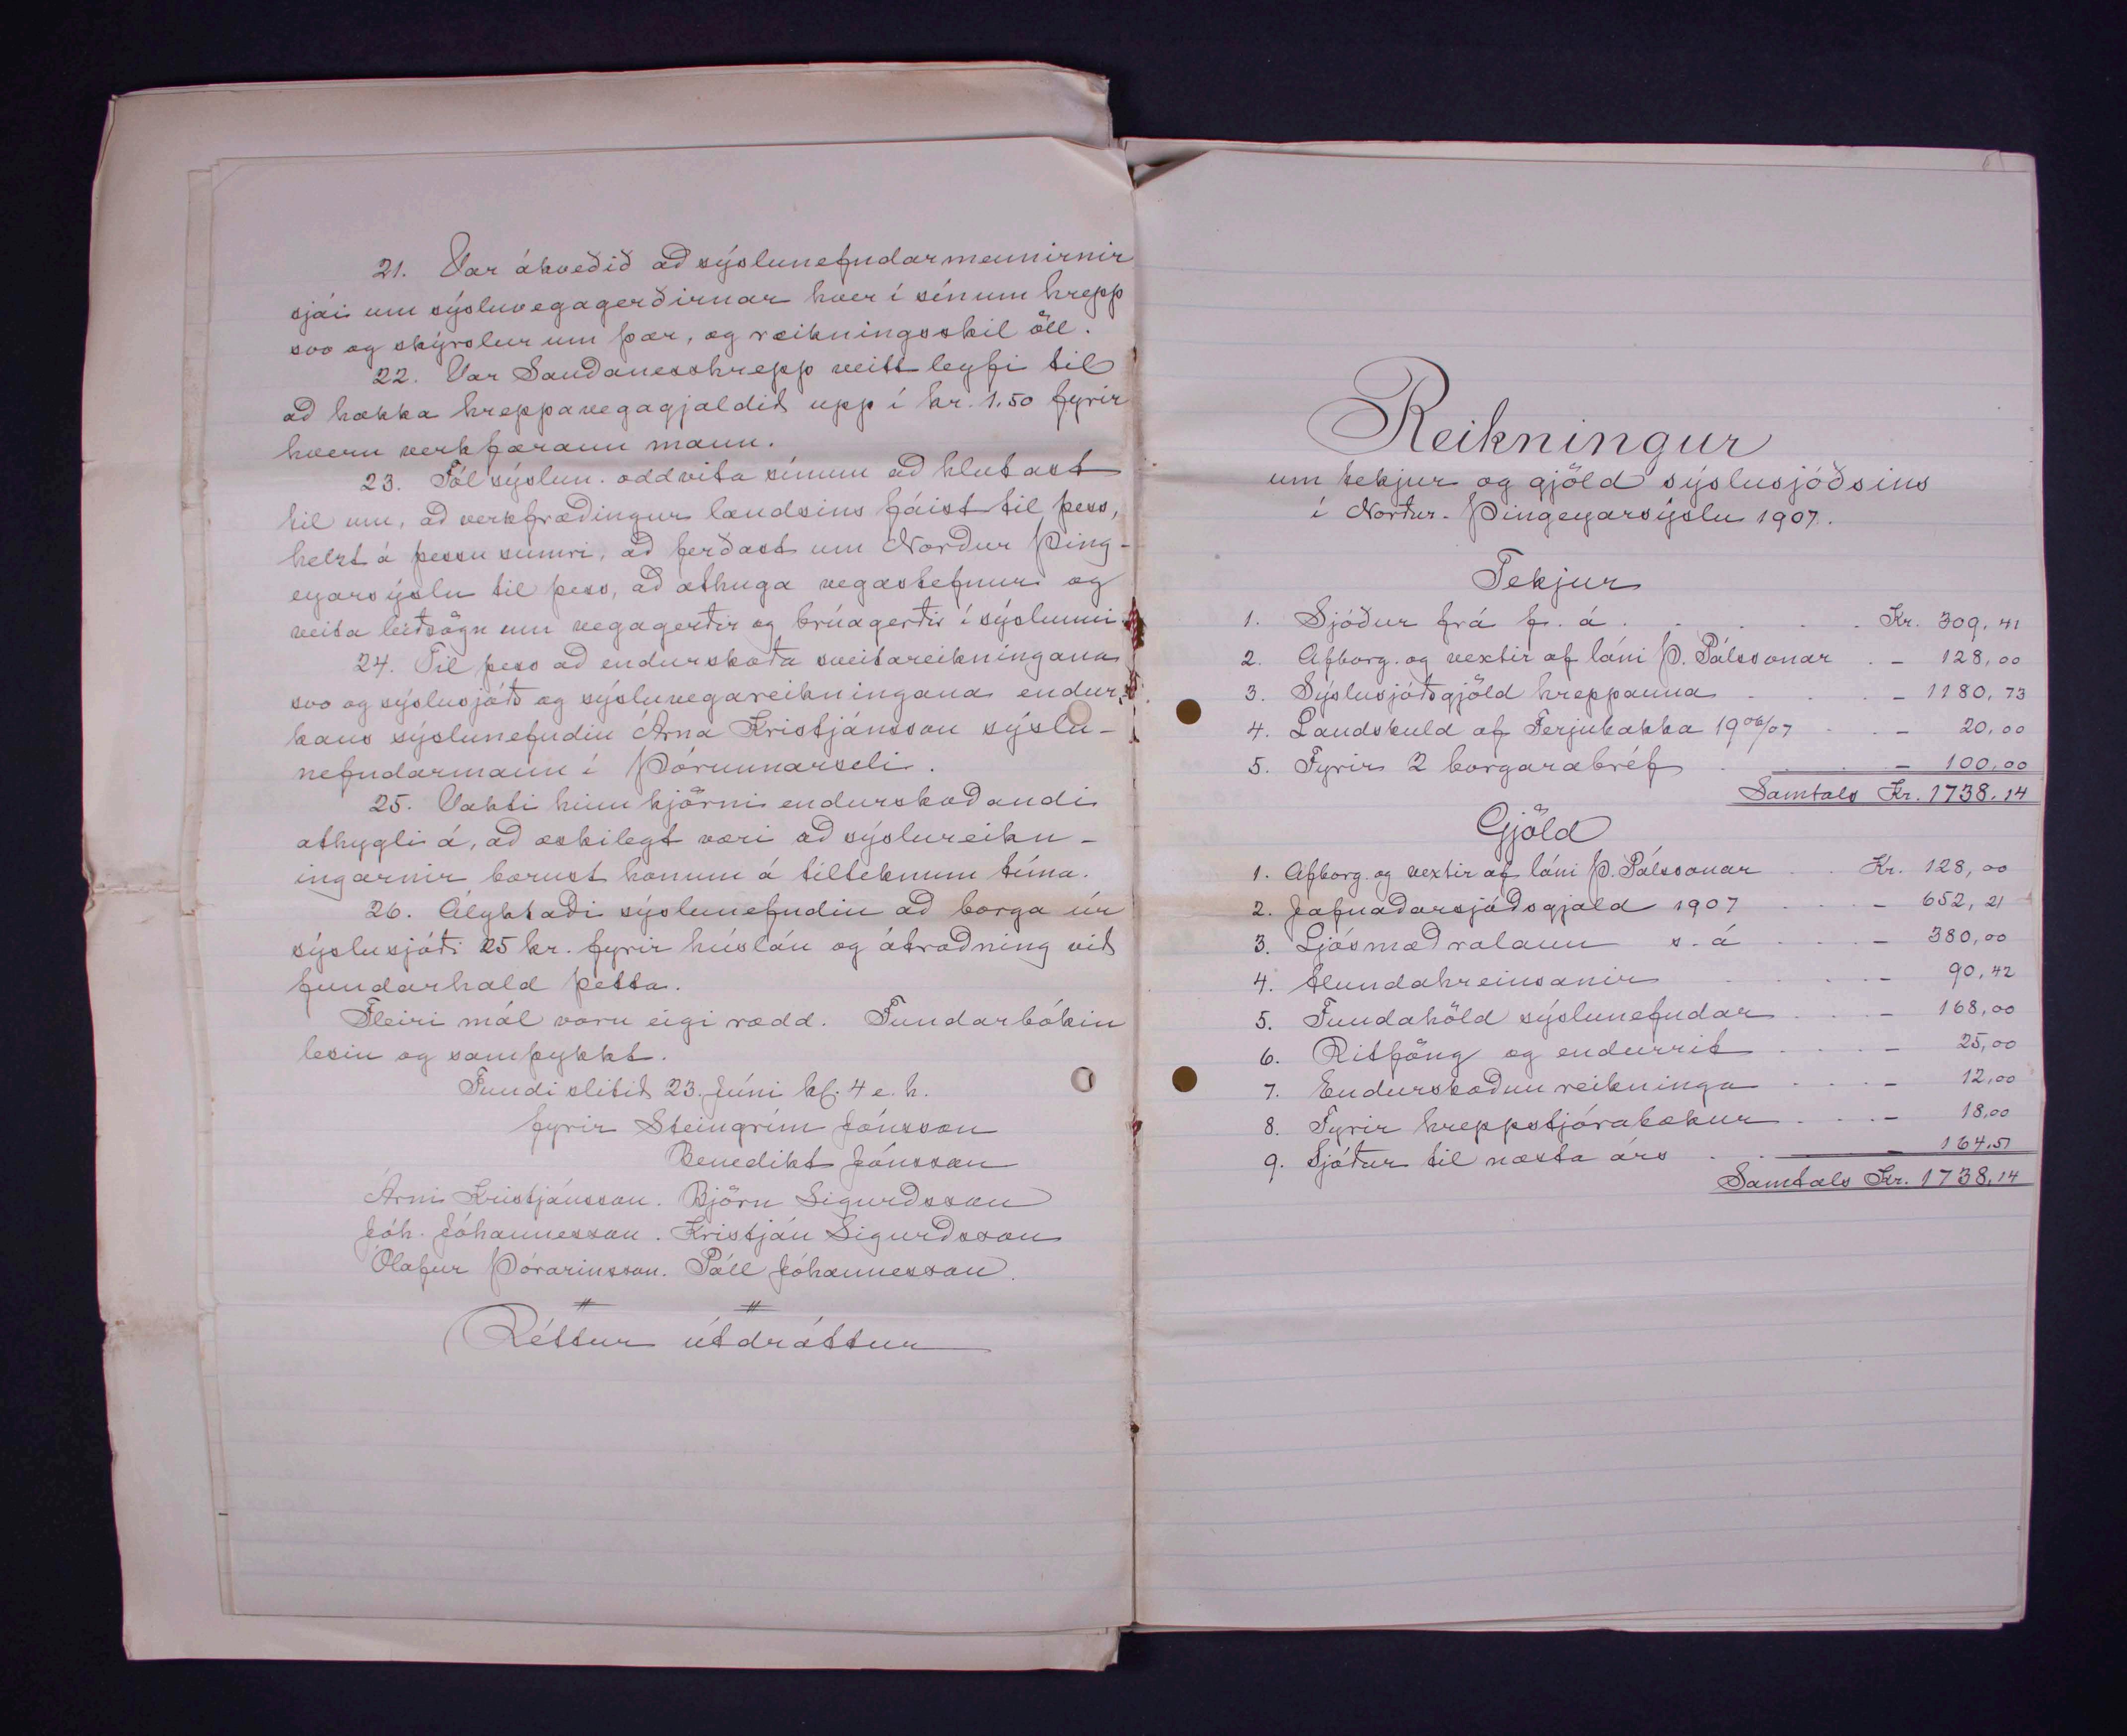 21. Var ákveðið að sýslunefndarmennirnir
sjái um sýsluvegagerðirnar hver í sínum hrepp
svo og skýrslur um þær, og reikningsskil öll.
22. Var Sauðanesshrepp veitt leyfi til
að hækka hreppavegagjaldið upp í kr. 1,50 fyrir
hvern verkfærann mann.
23. Fól sýslun. oddvita sínum að hlutast
til um, að verkfræðingur landsins fáist til þess,
helzt á þessu sumri, að ferðast um Norður Þing-
eyarsýslu til þess, að athuga vegastefnur og
veita leiðsögn um vegagerðir og brúagerðir í sýslunni.
24. Til þess að endurskoða sveitareikningana
svo og sýslusjóðs og sýsluvegareikningana endur-
kaus sýslunefndin Árna Kristjánsson sýslu-
nefndarmann í Þórunnarseli.
25. Vakti hinn kjörni endurskoðandi
athygli á, að æskilegt væri að sýslureikn-
ingarnir bærust honum á tilteknum tíma.
26. Ályktaði sýslunefndin að borga úr
sýslusjóði 25 kr. fyrir húslán og átroðning við
fundarhald þetta.
Fleiri mál voru eigi rædd. Fundarbókin
lesin og samþykkt.
Fundi slitið 23. Júní kl. 4 e. h.
fyrir Steingrím Jónsson
Benedikt Jónsson
Árni Kristjánsson. Björn Sigurðsson
Jóh. Jóhannesson. Kristján Sigurðsson
Ólafur Þórarinsson. Páll Jóhannesson.
Réttur útdráttur
Reikningur
um tekjur og gjöld sýslusjóðsins
í Norður-Þingeyarsýslu 1907.
Tekjur
1. Sjóður frá f. á . . . . . Kr. 309,41
2. Afborg. og vextir af láni Þ. Pálssonar . - 128,00
3. Sýslusjóðsgjöld hreppanna . . . - 1180,73
4. Landskuld af Ferjubakka 1906/07 . . - 20,00
5. Fyrir 2 borgarabréf . . . - 100,00
Samtals Kr. 1738.14
Gjöld
1. Afborg. og vextir af láni Þ. Pálssonar . . Kr. 128,00
2. Jafnaðarsjóðsgjald 1907 . . . - 652,21
3. Ljósmæðralaun s. á . . . - 380,00
4. Hundahreinsanir . . . . - 90,42
5. Fundahöld sýslunefndar . . . - 168,00
6. Ritföng og endurrit . . . - 25,00
7. Endurskoðun reikninga . . . - 12,00
8. Fyrir hreppstjórabækur . . . - 18,00
9. Sjóður til næsta árs . . . - 164,51
Samtals Kr. 1738,14